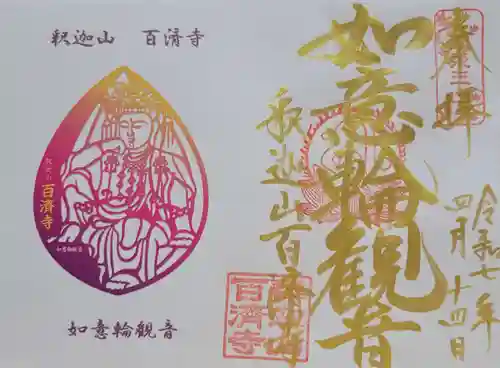 釈迦山 百済寺
釈迦山
百済寺
如意輪観音
如意輪觀音
奉拝
如意輪觀音
釈迦山百済寺
令和七年
四月十四日
百済寺